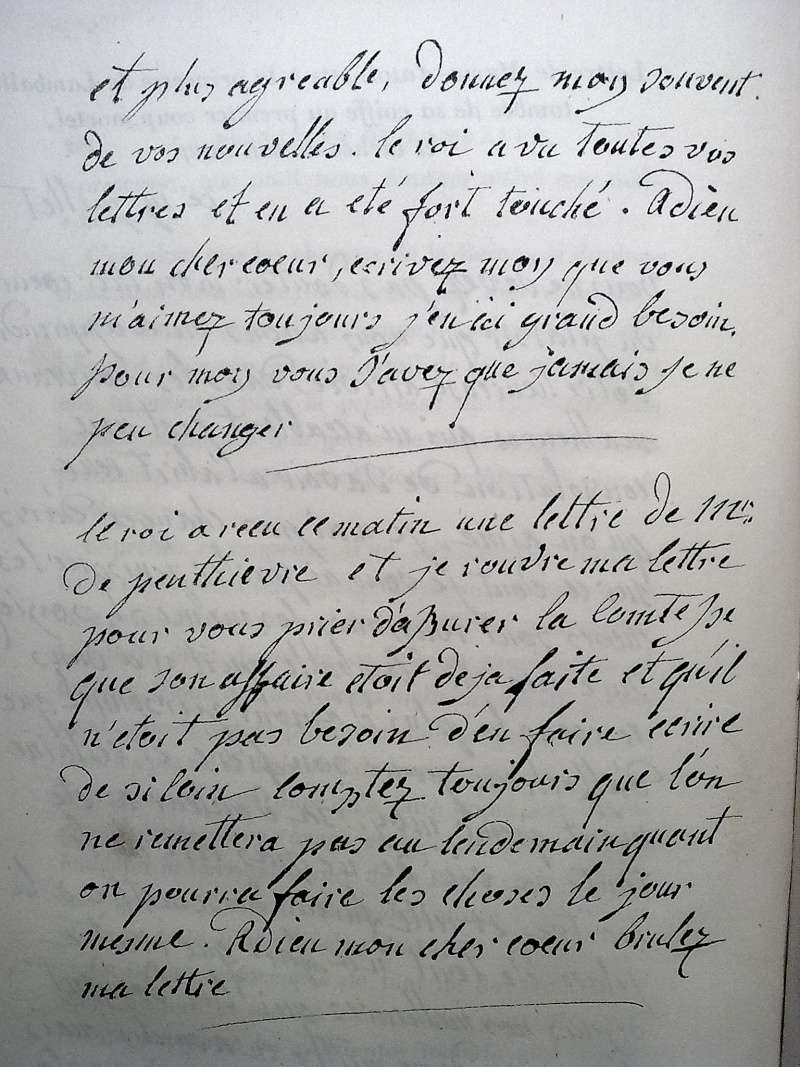 et plus agreable, donnez moy souvent
de vos nouvelles. le roi a vu toutes vos
lettres et en a eté fort touché. Adieu
mon cher coeur, ecrivez moy que vous
m'aimez toujours j'en ai grand besoin.
pour moy vous s'avez que jamais je ne
peu changer
le roi a recu ce matin une lettre de Mr.
de penthievre et je rouvre ma lettre
pour vous prier d'assurer la Comtesse
que son affaire etoit deja faite et qu'il
n'etoit pas besoin d'en faire ecrire
de si loin comptez toujours que l'on
ne remettera pas au lendemain quant
on pourra faire les choses le jour
mesme. Adieu mon cher coeur brulez
ma lettre